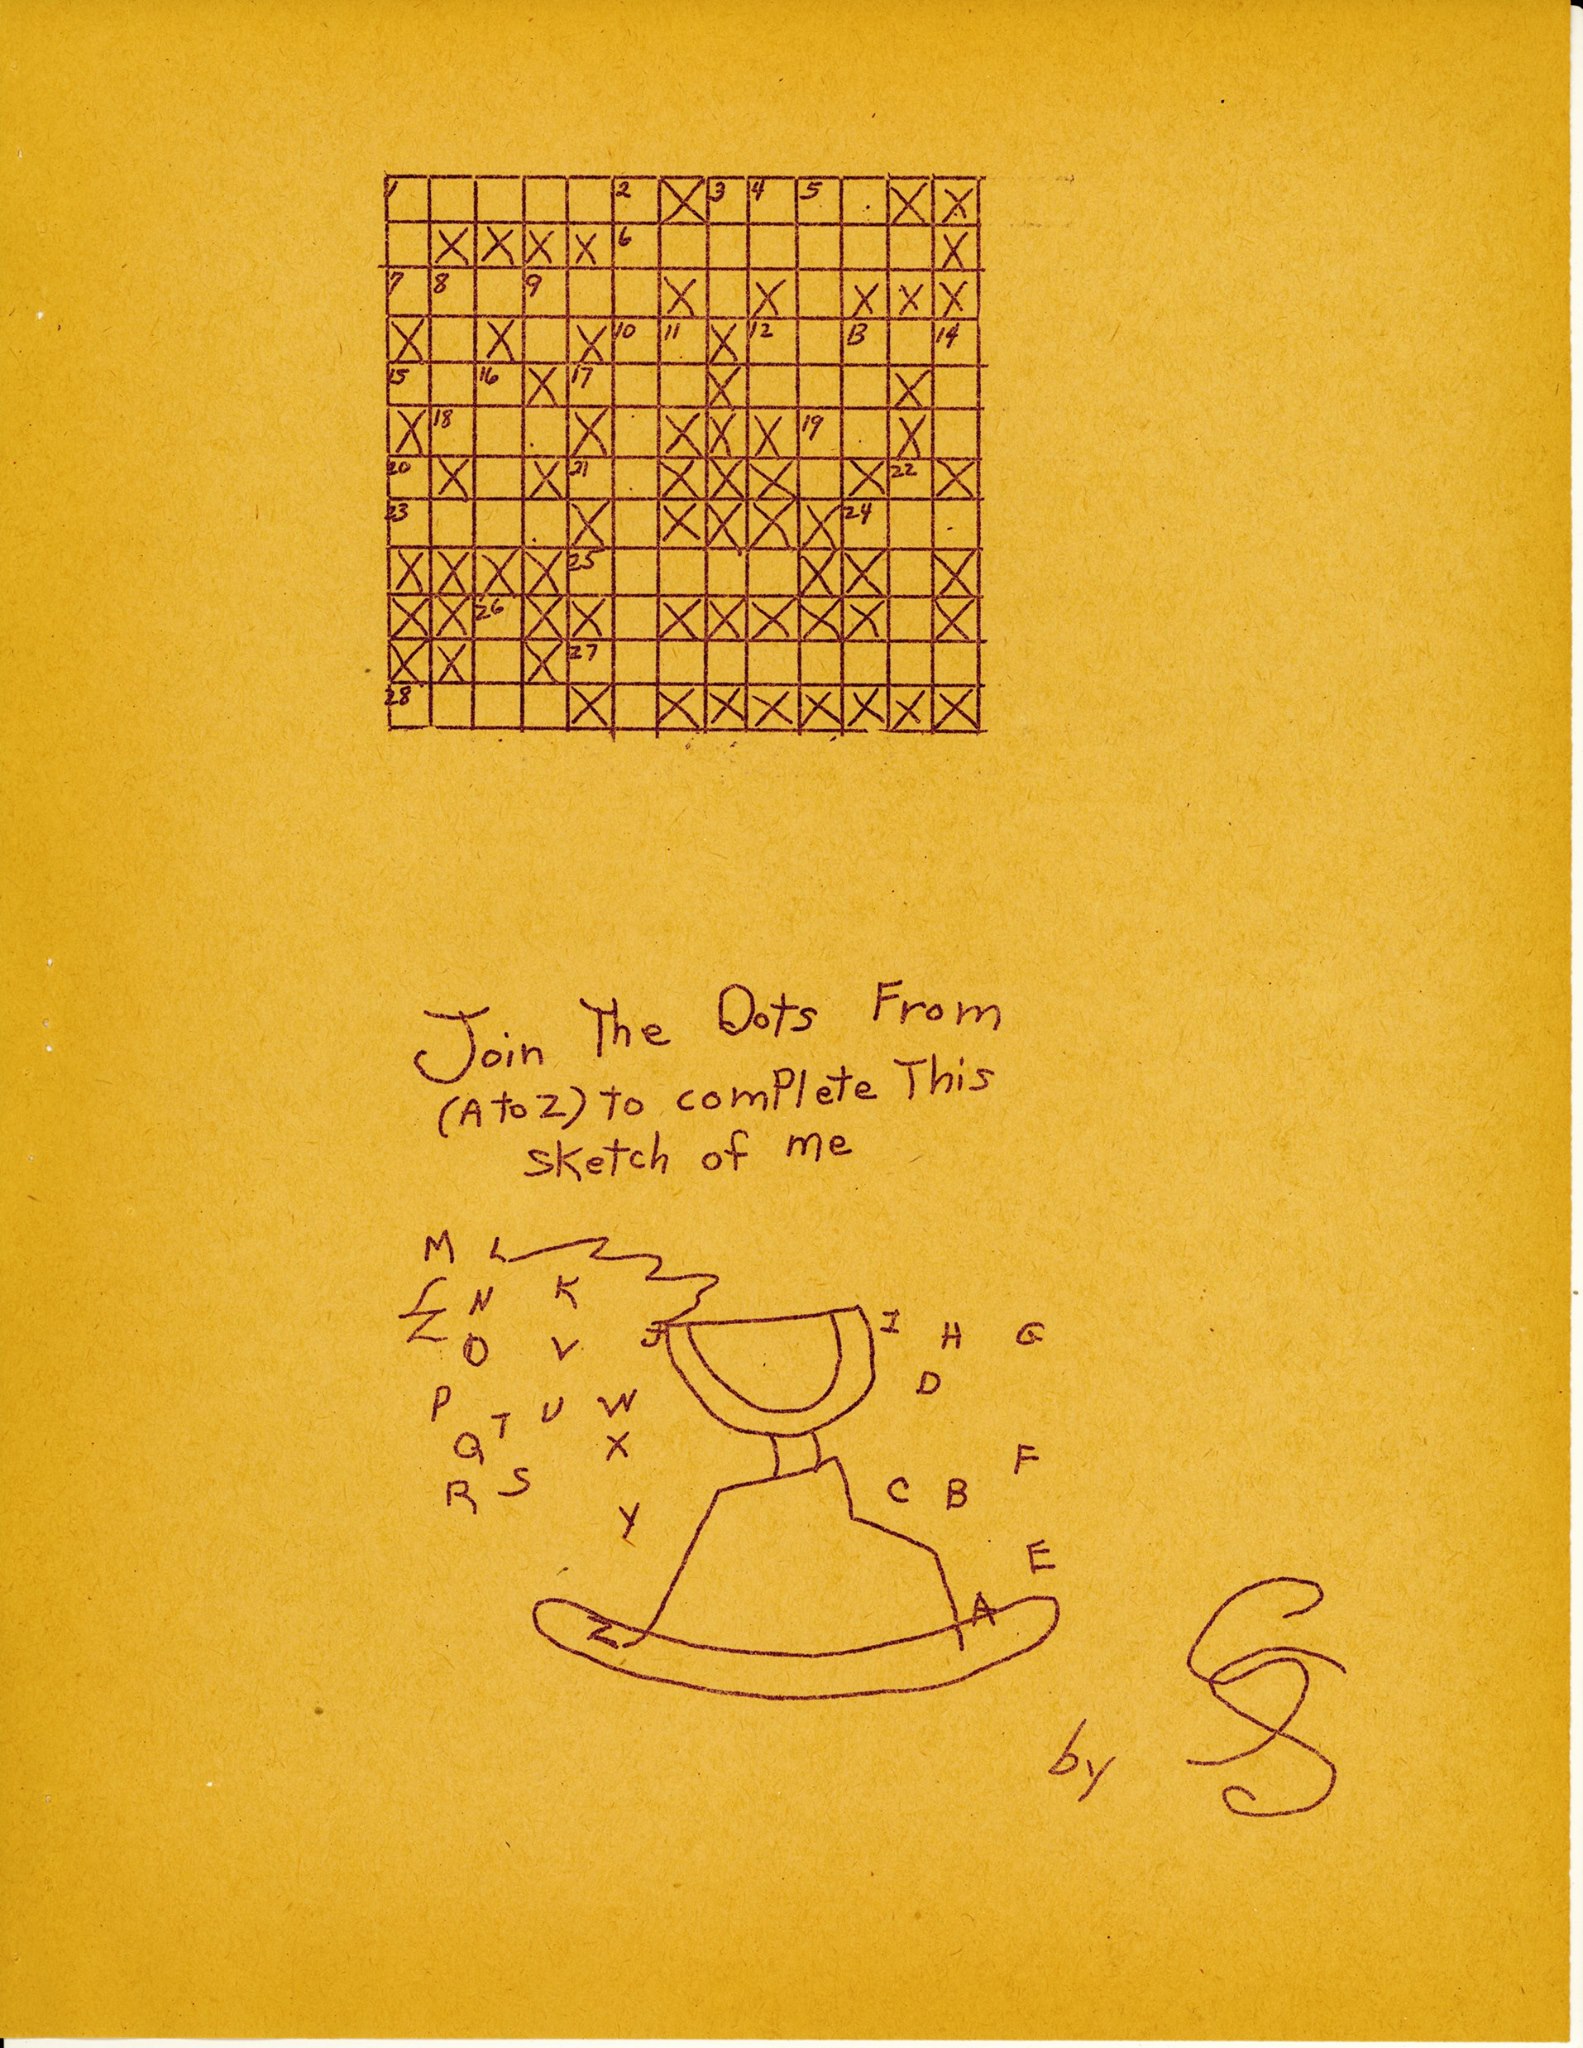 1 2 X 3 4 5 X X
X X X X 6 X
7 8 9 X X X X X
X X X 10 11 X 12 13 14
15 16 X 17 X X
X 18 X X X X 19 X
20 X X 21 X X X X 22 X
23 X X X X X 24
X X X X 25 X X X
X X 26 X X X X X X X X
X X X 27
28 X X X X X X X X
Join The Dots From
(A to Z) to complete This
sketch of me
M L
N K
Z O V J I H G
P T U W D
Q X F
R S C B
Y E
Z A
by